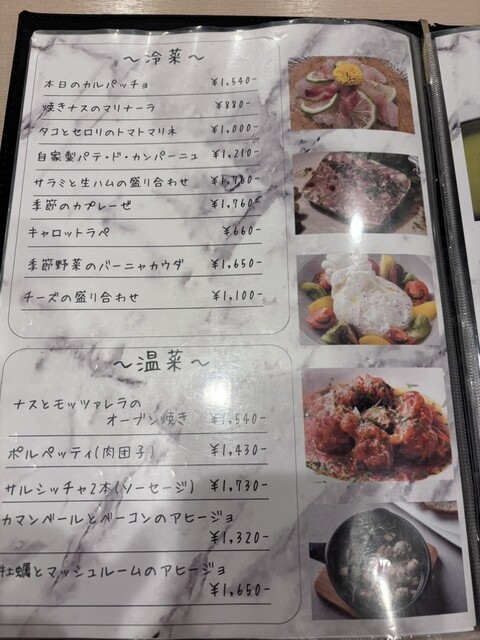 ～冷菜～
本日のカルパッチョ ¥1,540-
焼きナスのマリナーラ ¥880-
タコとセロリのトマトマリネ ¥1,000-
自家製パテ・ド・カンパーニュ ¥1,210-
サラミと生ハムの盛り合わせ
季節のカプレーゼ ¥1,760-
キャロットラペ ¥660-
季節野菜のバーニャカウダ ¥1,650-
チーズの盛り合わせ ¥1,100-
～温菜～
ナスとモッツァレラの
オーブン焼き ¥1,540-
ポルペッティ(肉団子) ¥1,430-
サルシッチャ2本(ソーセージ) ¥1,730-
カマンベールとベーコンのアヒージョ
¥1,320-
牡蠣とマッシュルームのアヒージョ
¥1,650-